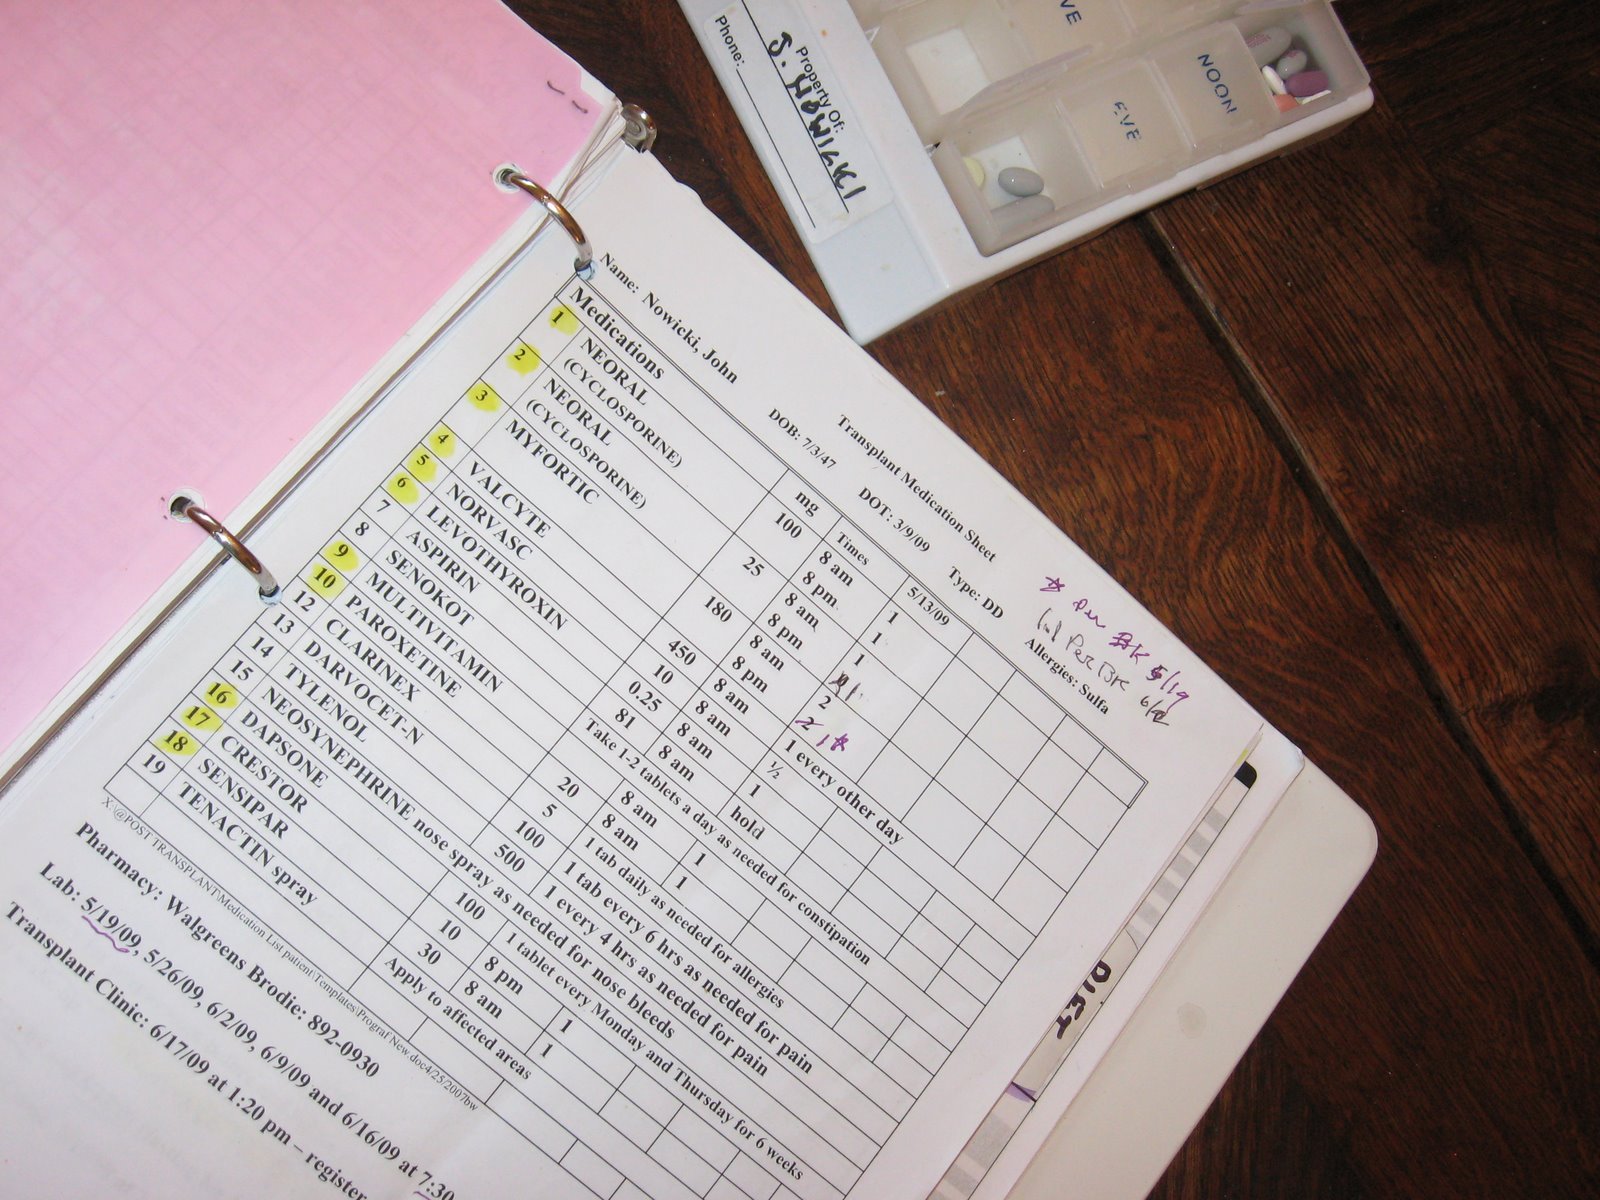 EVE
NOON
EVE
Property Of:
J. NOWICKI
Phone:
Transplant Medication Sheet
Name: Nowicki, John DOB: 7/3/47 DOT: 3/9/09 Type: DD Allergies: Sulfa
* Per BK 5/19
Per BK 6/2
Medications mg Times 5/13/09
1 NEORAL (CYCLOSPORINE) 100 8 am 1
8 pm 1
2 NEORAL (CYCLOSPORINE) 25 8 am 1
8 pm 1
3 MYFORTIC 180 8 am 2
8 pm 2 1*
4 VALCYTE 450 8 am 1 every other day
5 NORVASC 10 8 am ½
6 LEVOTHYROXIN 0.25 8 am 1
7 ASPIRIN 81 8 am hold
8 SENOKOT Take 1-2 tablets a day as needed for constipation
9 MULTIVITAMIN 8 am 1
10 PAROXETINE 20 8 am 1
12 CLARINEX 5 1 tab daily as needed for allergies
13 DARVOCET-N 100 1 tab every 6 hrs as needed for pain
14 TYLENOL 500 1 every 4 hrs as needed for pain
15 NEOSYNEPHRINE nose spray as needed for nose bleeds
16 DAPSONE 100 1 tablet every Monday and Thursday for 6 weeks
17 CRESTOR 10 8 pm 1
18 SENSIPAR 30 8 am 1
19 TENACTIN spray Apply to affected areas
X:\@POST TRANSPLANT\Medication List patient\Templates\Prograf New.doc4/25/2007bw
Pharmacy: Walgreens Brodie: 892-0930
Lab: 5/19/09, 5/26/09, 6/2/09, 6/9/09 and 6/16/09 at 7:30
Transplant Clinic: 6/17/09 at 1:20 pm – register
DIET